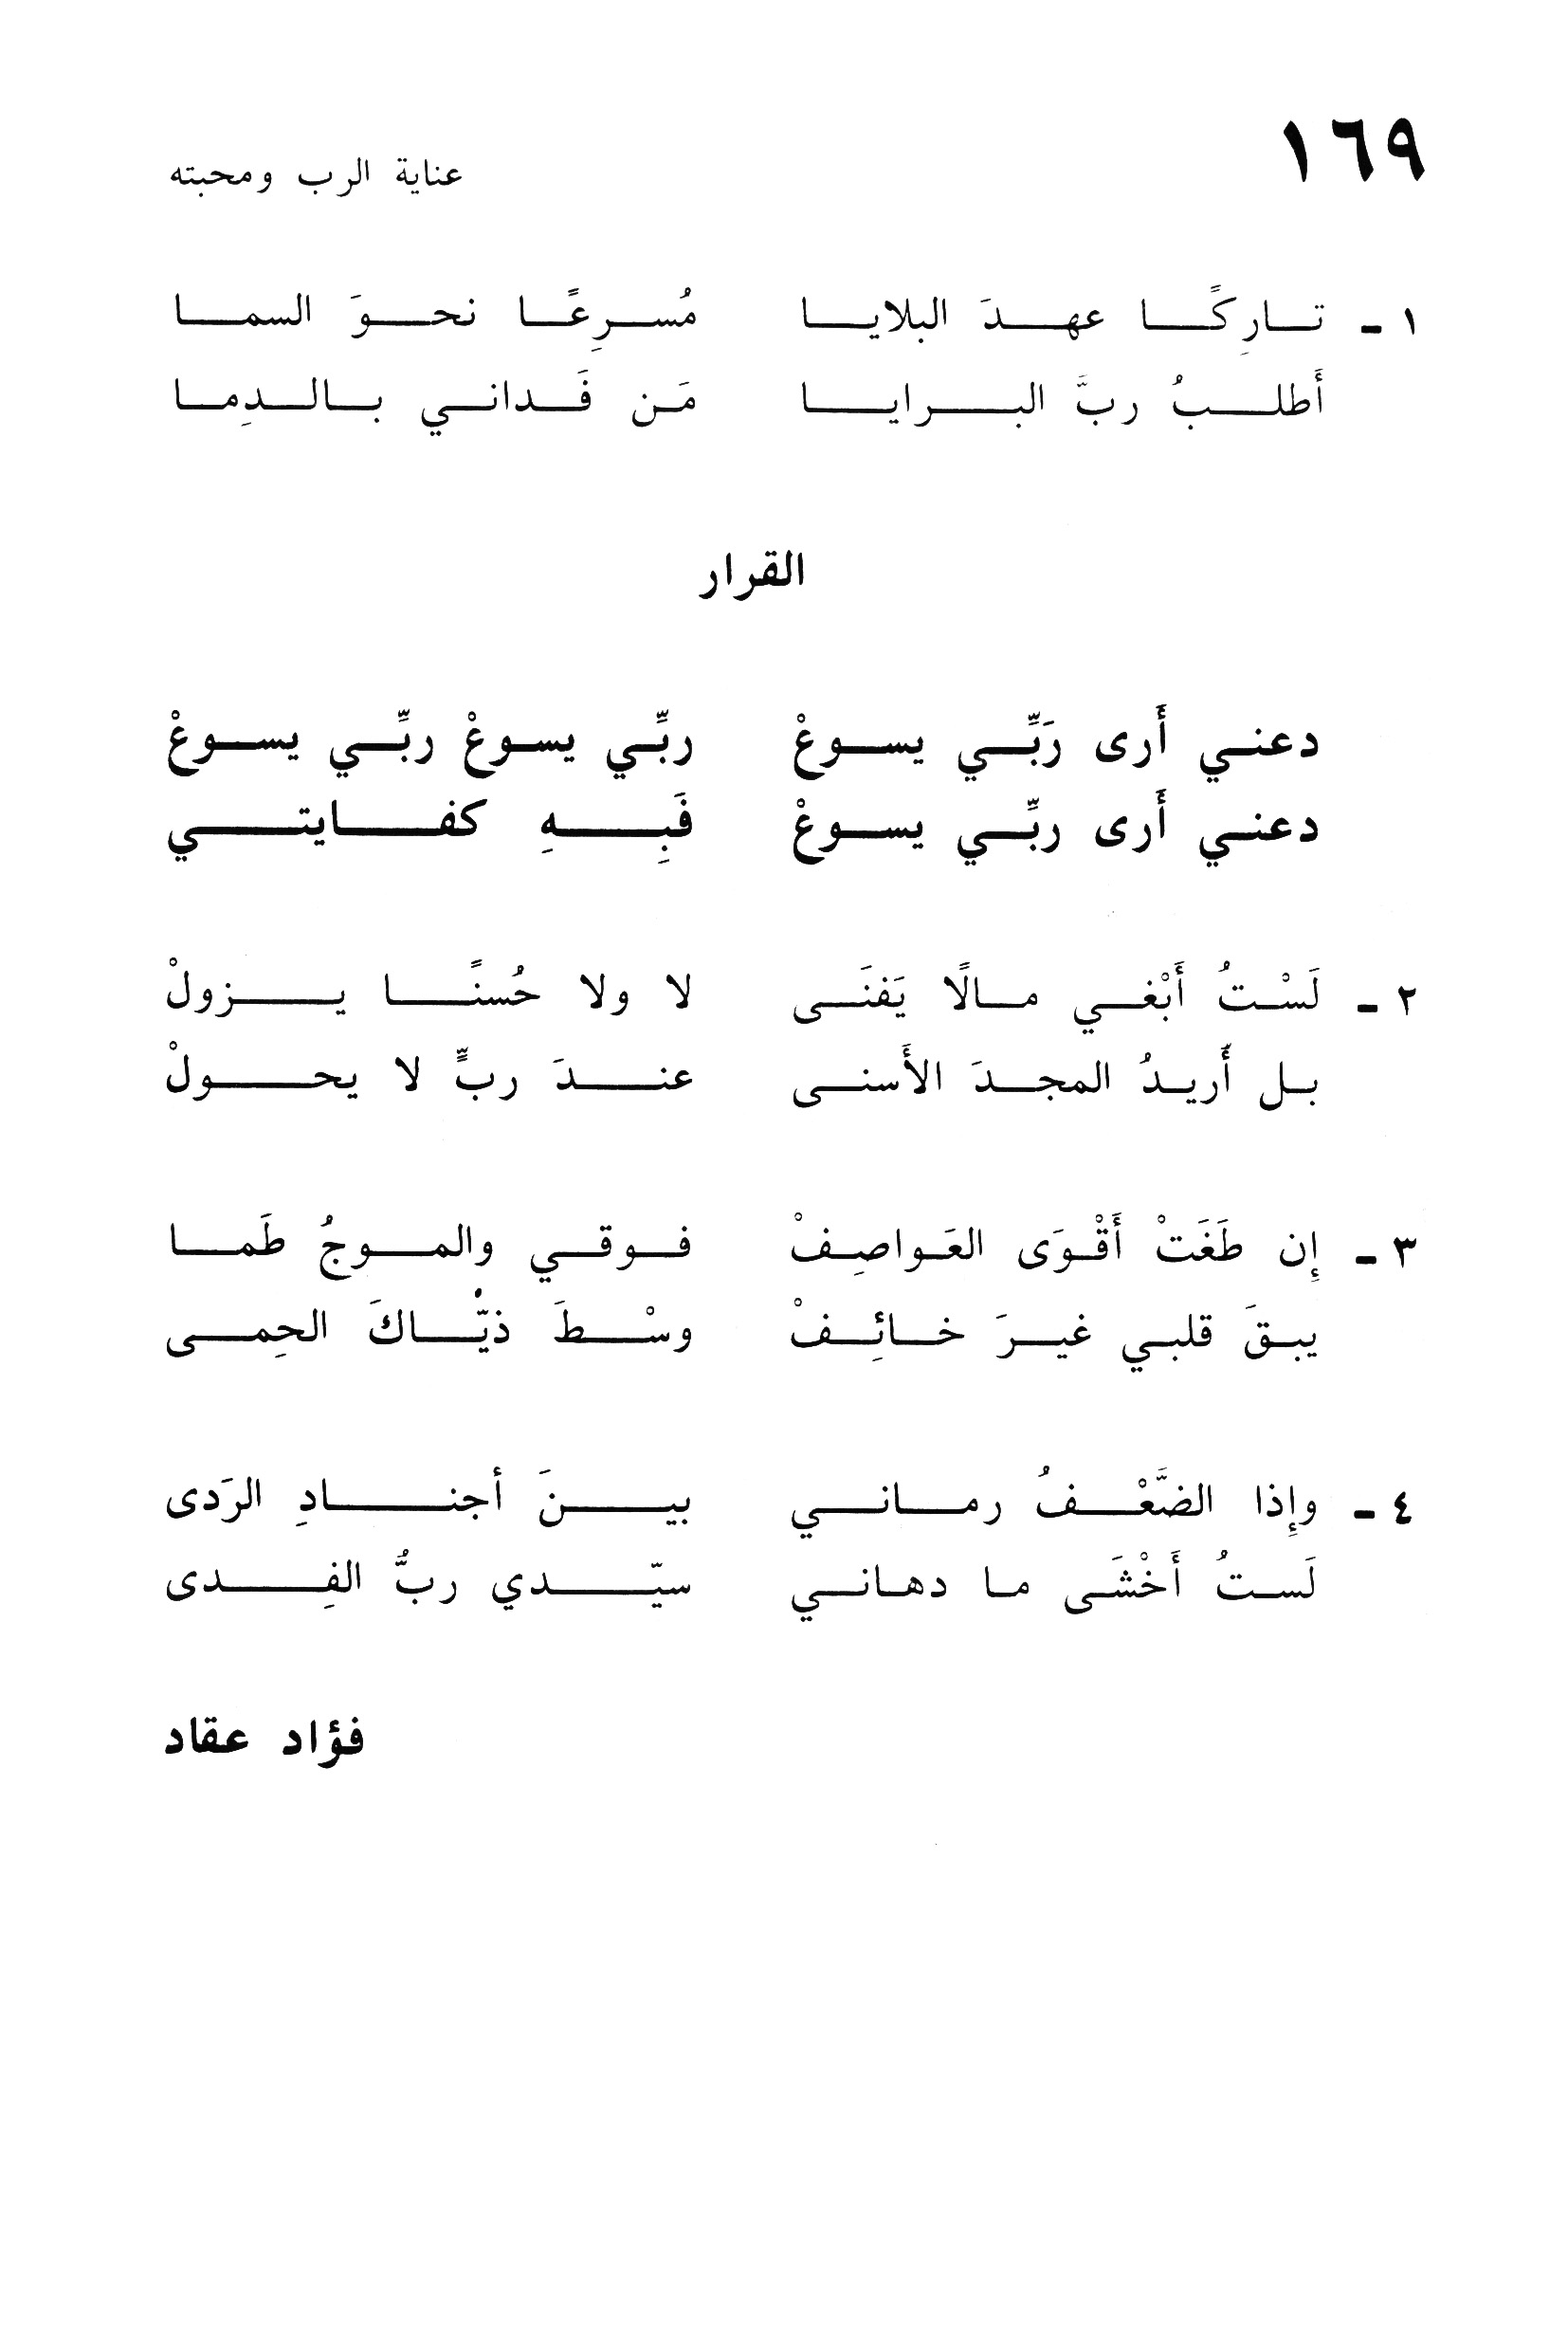 ١٦٩
عناية الرب ومحبته
١ - تارِكًا عهدَ البلايا مُسرِعًا نحوَ السما
أَطلبُ ربَّ البرايا مَن فَداني بالدِما
القرار
دعني أَرى رَبِّي يسوعْ ربِّي يسوعْ ربِّي يسوعْ
دعني أَرى ربِّي يسوعْ فَبِهِ كفايتي
٢ - لَسْتُ أَبْغي مالًا يَفنَى لا ولا حُسنًا يزولْ
بل أُريدُ المجدَ الأَسنى عندَ ربٍّ لا يحولْ
٣ - إِن طَغَتْ أَقْوَى العَواصِفْ فوقي والموجُ طَما
يبقَ قلبي غيرَ خائِفْ وسْطَ ذيّاكَ الحِمى
٤ - وإِذا الضَّعْفُ رماني بينَ أجنادِ الرَدى
لَستُ أَخْشَى ما دهاني سيّدي ربُّ الفِدى
فؤاد عقاد